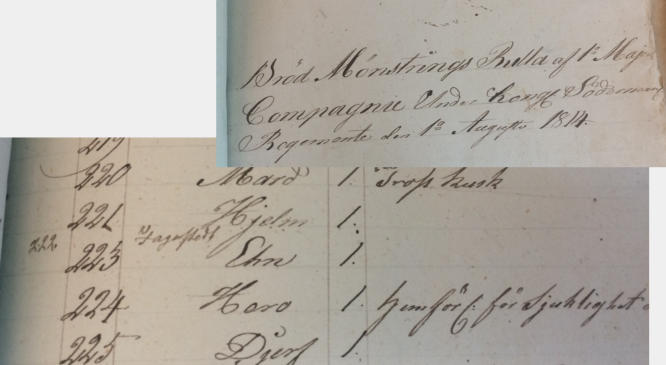 Bröd Mönstrings Rulla af 1a Major
Compagnie Under Kongl Södermanl
Regemente den 1a Augusti 1814.
219
220 Mard 1. Tross kusk
221 Hjelm 1.
222 Fagerstedt
223 Ehn 1.
224 Haro 1. hemför f. för Sjuklighet
225 Djerf 1.